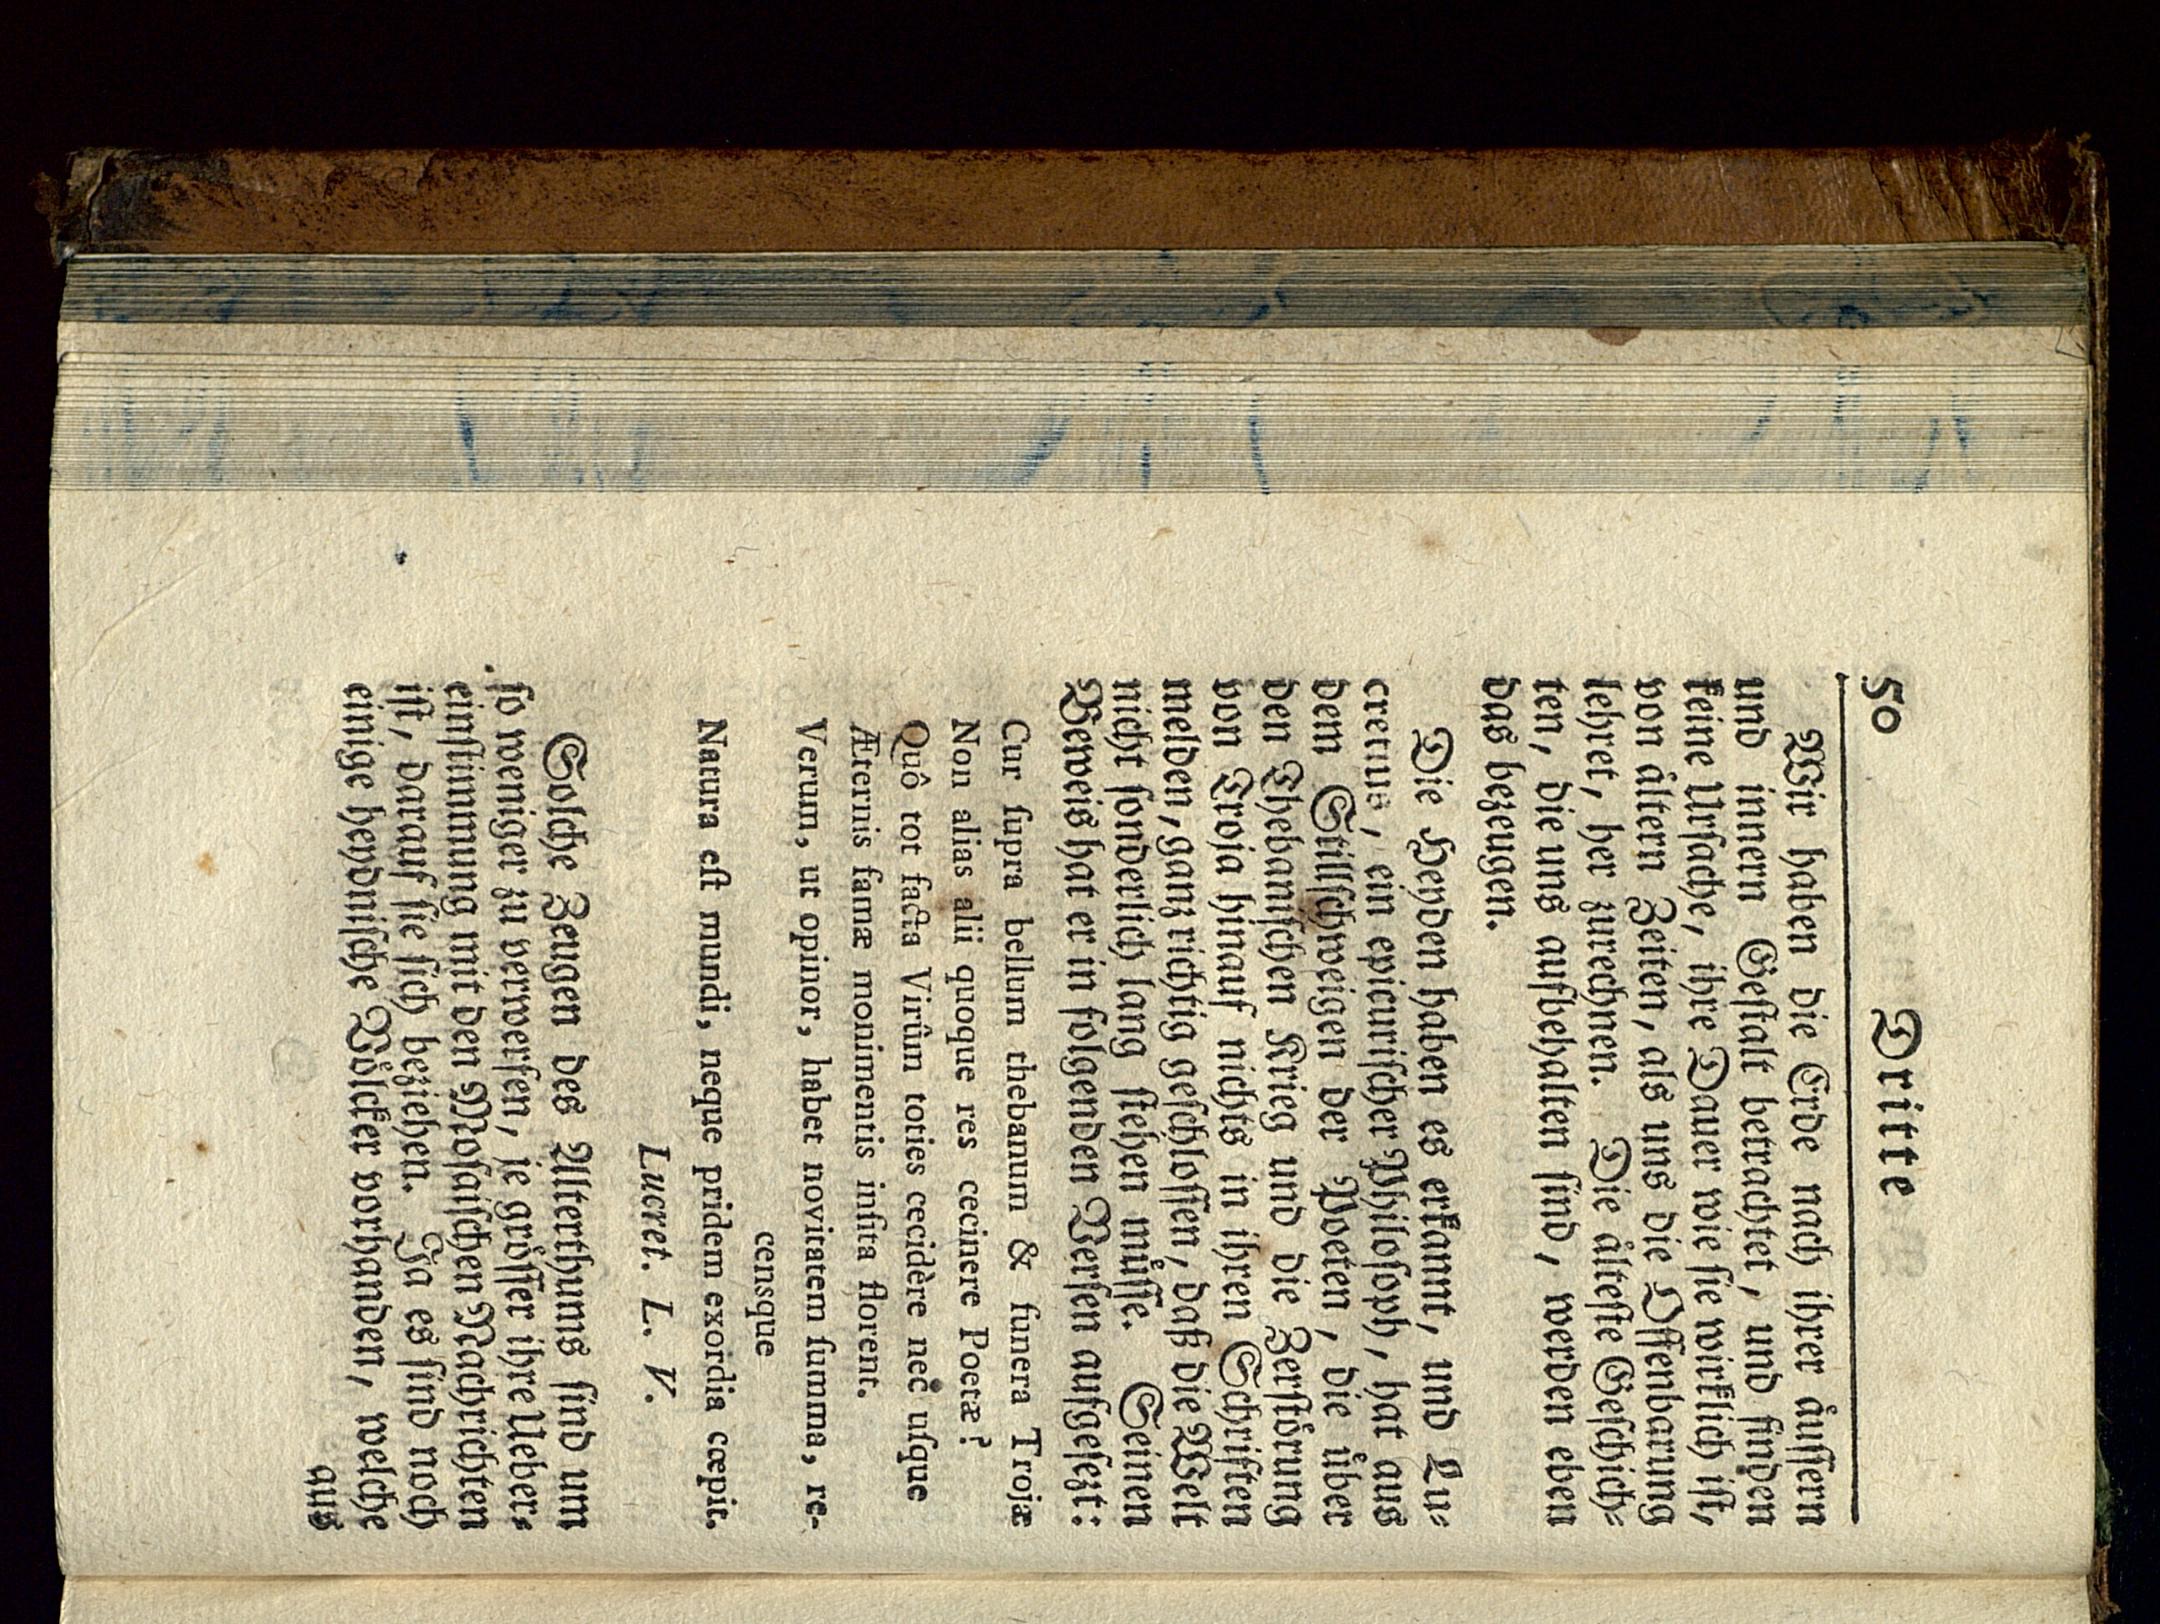 50 Dritte
Wir haben die Erde nach ihrer åuſſern
und innern Geſtalt betrachtet, und finden
keine Urſache, ihre Dauer wie ſie wirklich iſt,
von åltern Zeiten, als uns die Offenbarung
lehret, her zurechnen. Die ålteſte Geſchich-
ten, die uns aufbehalten ſind, werden eben
das bezeugen.
Die Heyden haben es erkannt, und Lu-
cretius, ein epicuriſcher Philoſoph, hat aus
dem Stillſchweigen der Poeten, die ůber
den Thebaniſchen Krieg und die Zerſtörung
von Troja hinauf nichts in ihren Schriften
melden, ganz richtig geſchloſſen, daß die Welt
nicht ſonderlich lang ſtehen můſſe. Seinen
Beweis hat er in folgenden Verſen aufgeſezt:
Cur ſupra bellum thebanum & funera Trojæ
Non alias alii quoque res cecinere Poetæ?
Quô tot facta Virûm toties cecidère nec uſque
Æternis famæ monimentis inſita florent.
Verum, ut opinor, habet novitatem ſumma, re-
censque
Natura eſt mundi, neque pridem exordia cœpit.
Lucret. L. V.
Solche Zeugen des Alterthums ſind um
ſo weniger zu verwerfen, je gröſſer ihre Ueber-
einſtimmung mit den Moſaiſchen Nachrichten
iſt, darauf ſie ſich beziehen. Ja es ſind noch
einige heydniſche Völcker vorhanden, welche
aus